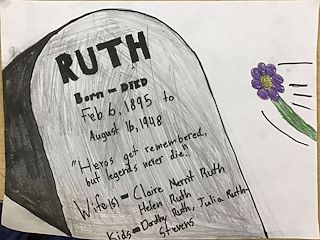 RUTH
Born - DIED
Feb 6, 1895 to
August 16, 1948
"Heros get remembered,
but legends never die."
Wife(s) - Claire Merrit Ruth
Helen Ruth
Kids - Dorothy Ruth, Julia Ruth-
Stevens